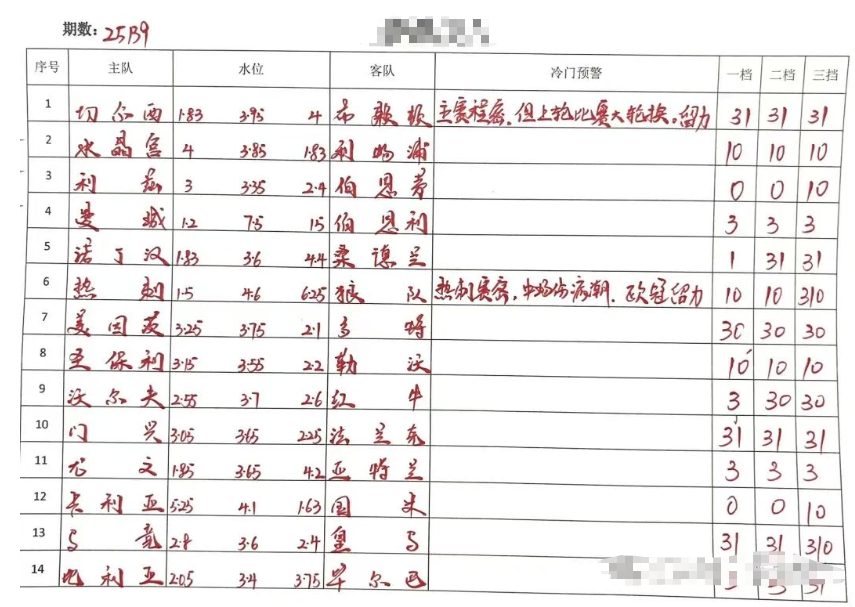 期数: 25139
序号 主队 水位 客队 冷门预警 一档 二档 三档
1 切尔西 1.83 3.95 4 布莱顿 主赛程密，但上轮比赛大轮换，留力 31 31 31
2 水晶宫 4 3.85 1.83 利物浦 10 10 10
3 利兹 3 3.35 2.4 伯恩茅 0 0 10
4 曼城 1.2 7.5 15 伯恩利 3 3 3
5 诺丁汉 1.83 3.6 4.4 桑德兰 1 31 31
6 热刺 1.5 4.6 6.25 狼队 热刺赛密，中场伤病潮，欧冠留力 10 10 310
7 美因茨 3.25 3.75 2.1 多特 30 30 30
8 圣保利 3.15 3.55 2.2 勒沃 10 10 10
9 沃尔夫 2.55 3.7 2.6 红牛 3 30 30
10 门兴 3.05 3.65 2.25 法兰克 31 31 31
11 尤文 1.85 3.65 4.2 亚特兰 3 3 3
12 卡利亚 5.25 4.1 1.63 国米 0 0 10
13 马竞 2.8 3.6 2.4 皇马 31 31 310
14 比利亚 2.05 3.4 3.75 毕尔巴